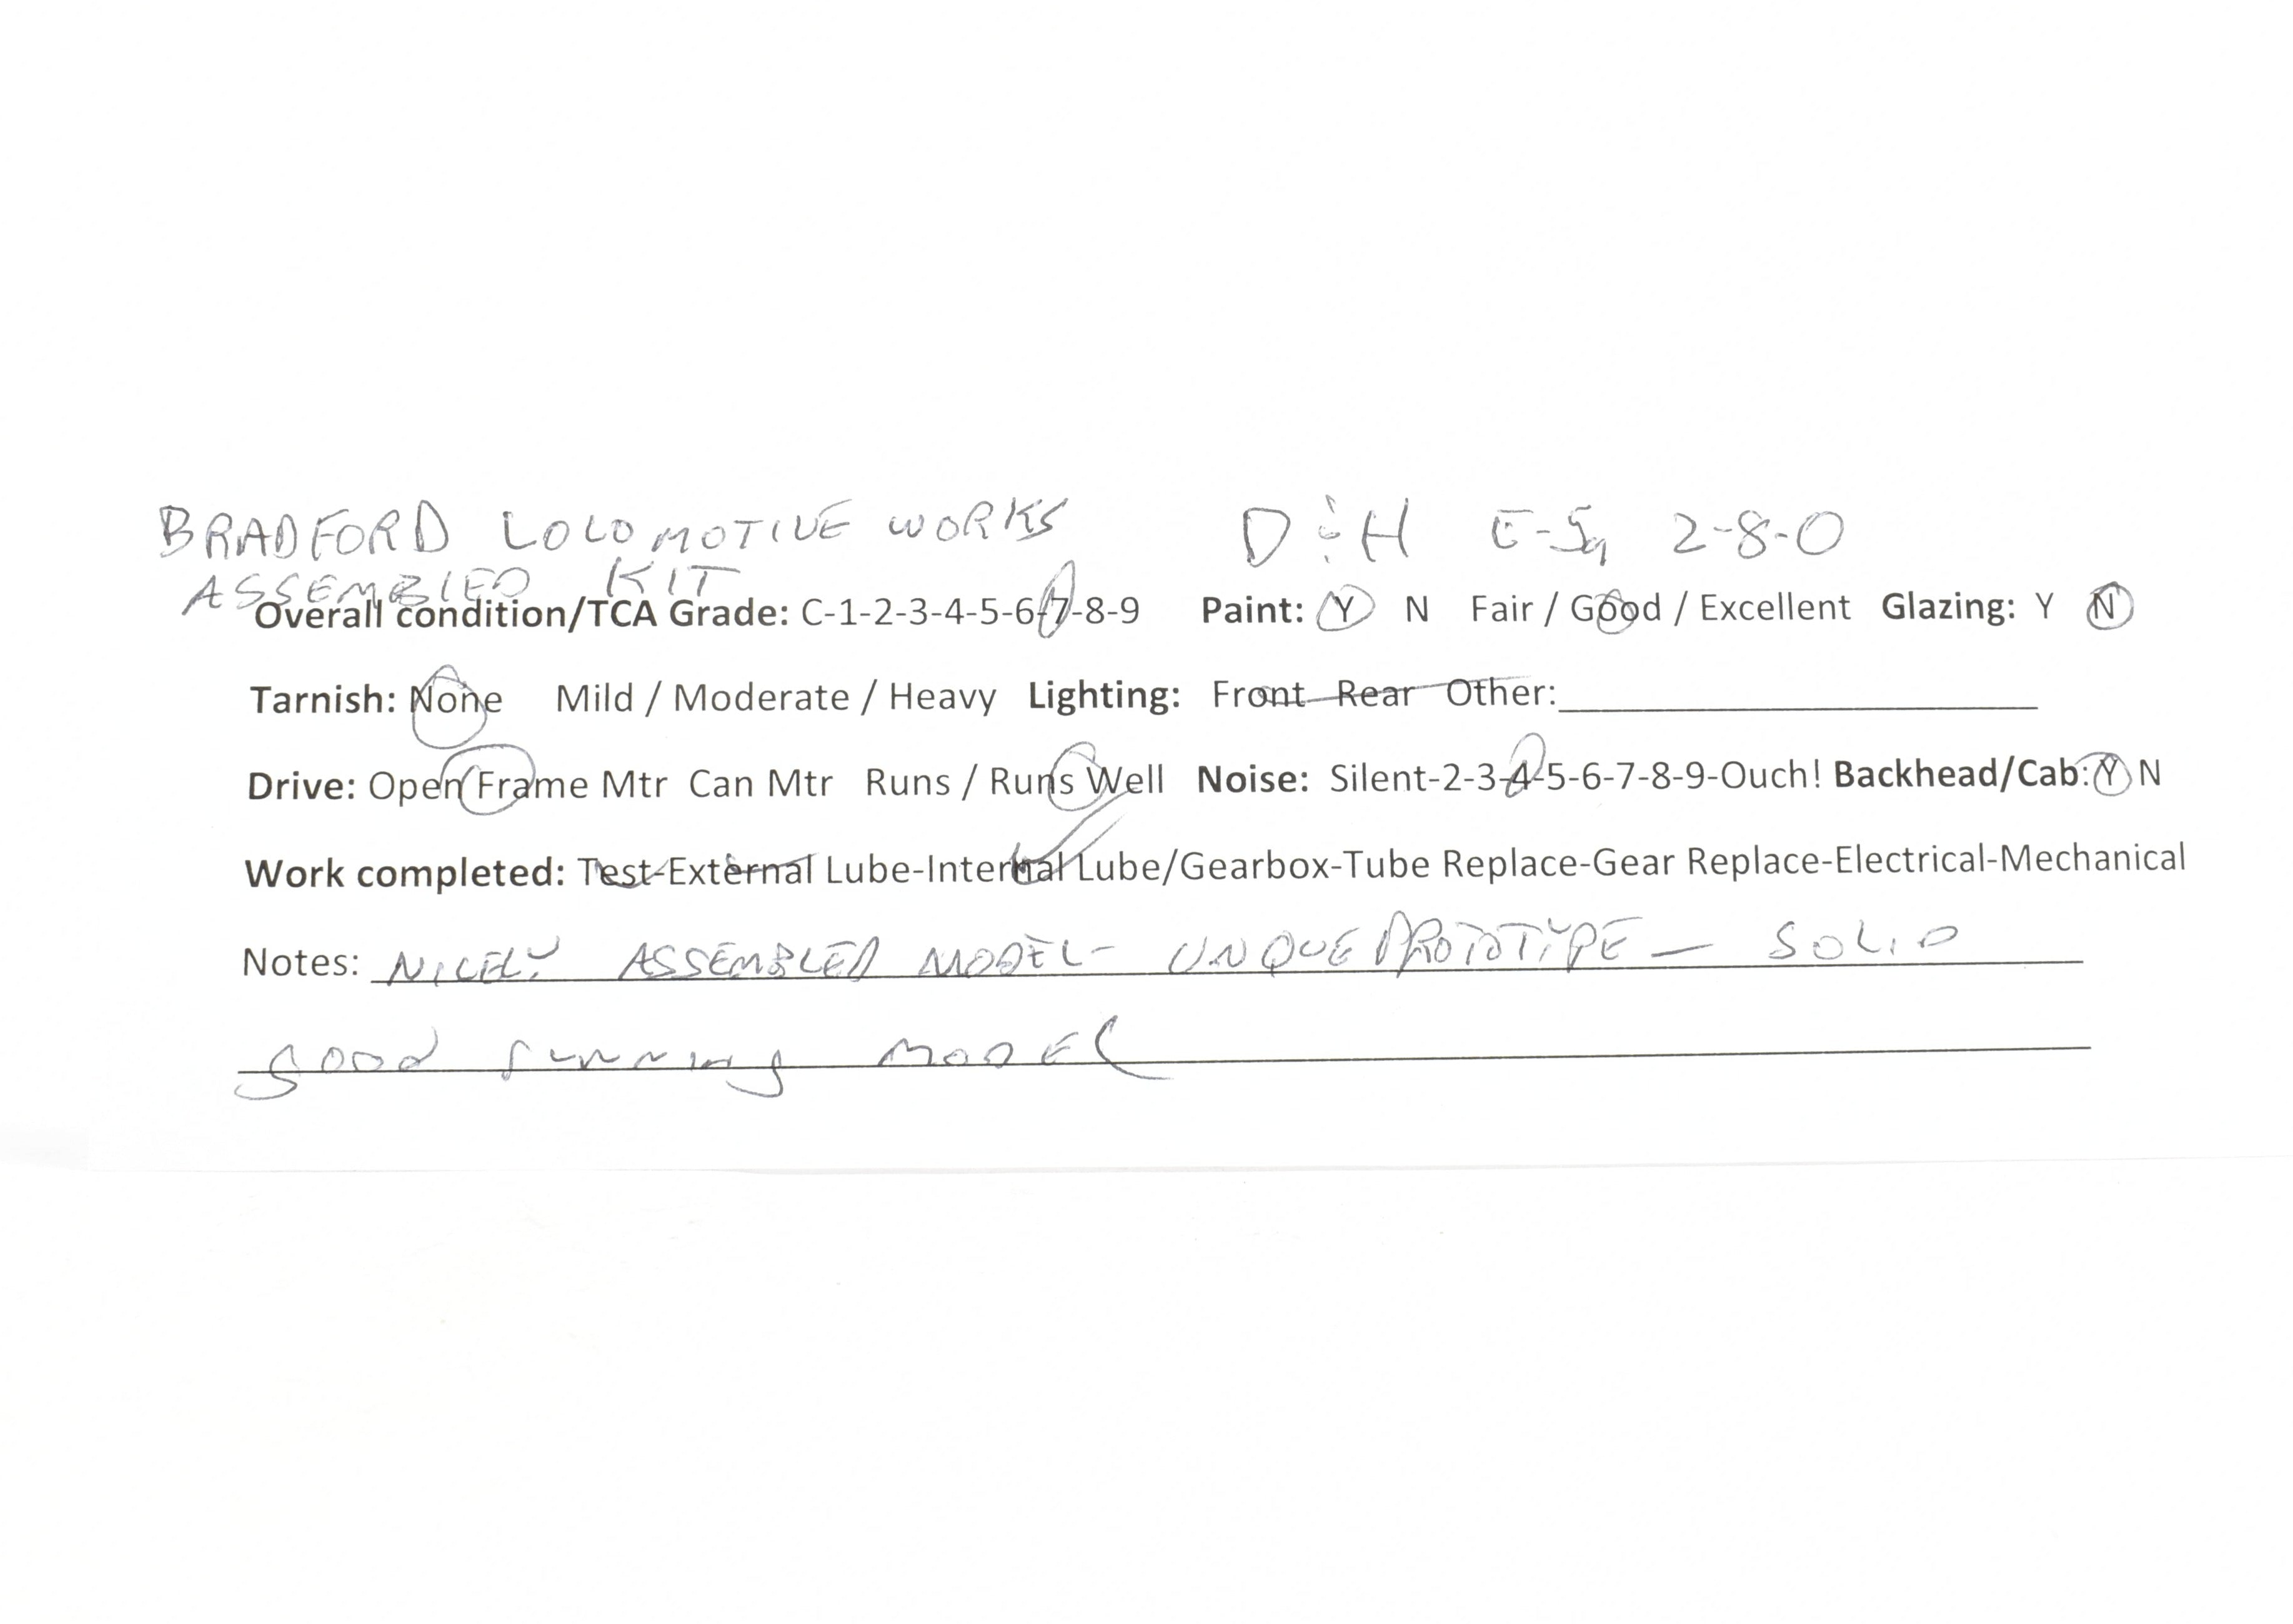 BRADFORD LOCOMOTIVE WORKS D&H E-5a 2-8-0
ASSEMBLED KIT
Overall condition/TCA Grade: C-1-2-3-4-5-6-7-8-9 Paint: Y N Fair / Good / Excellent Glazing: Y N
Tarnish: None Mild / Moderate / Heavy Lighting: Front Rear Other:
Drive: Open Frame Mtr Can Mtr Runs / Runs Well Noise: Silent-2-3-4-5-6-7-8-9-Ouch! Backhead/Cab: Y N
Work completed: Test-External Lube-Internal Lube/Gearbox-Tube Replace-Gear Replace-Electrical-Mechanical
Notes: NICELY ASSEMBLED MODEL - UNQUE PROTOTYPE — SOLID
good running MODEL